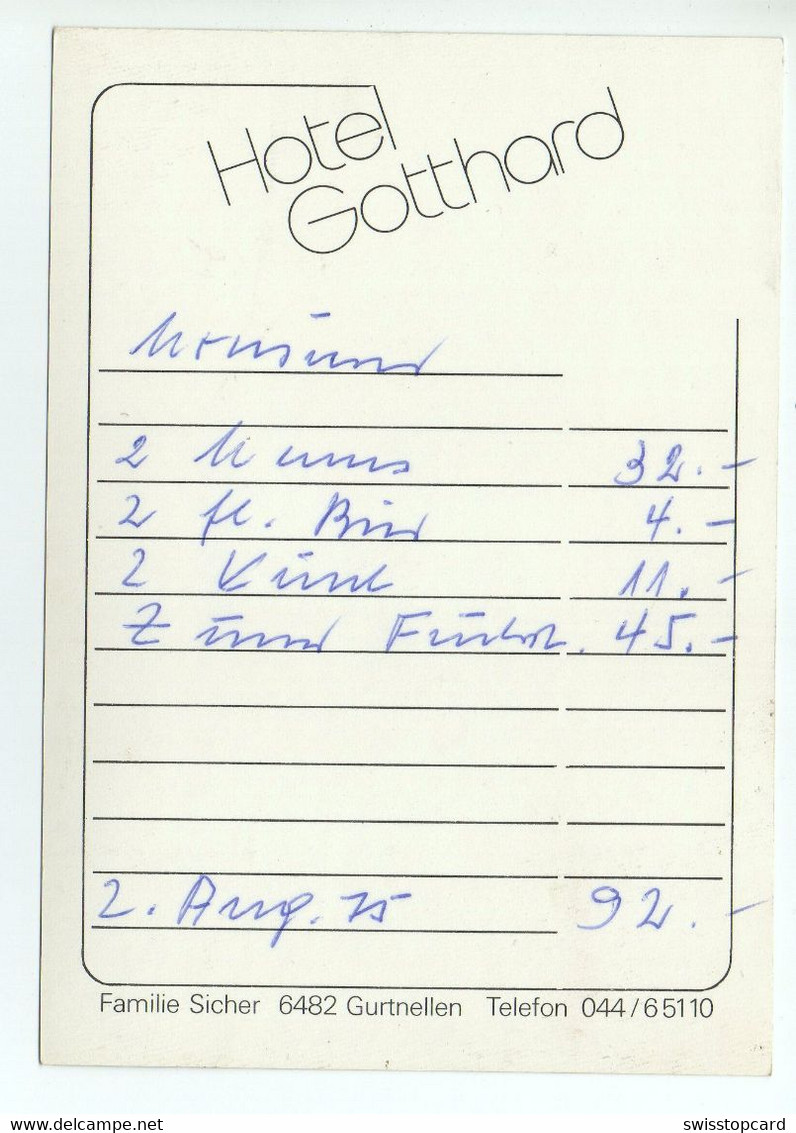 Hotel
Gotthard
2 Menus 32.-
2 fl. Bier 4.-
2 11.-
Z 45.-
2. Aug. 75 92.-
Familie Sicher 6482 Gurtnellen Telefon 044/65110
delcampe.net
swisstopcard